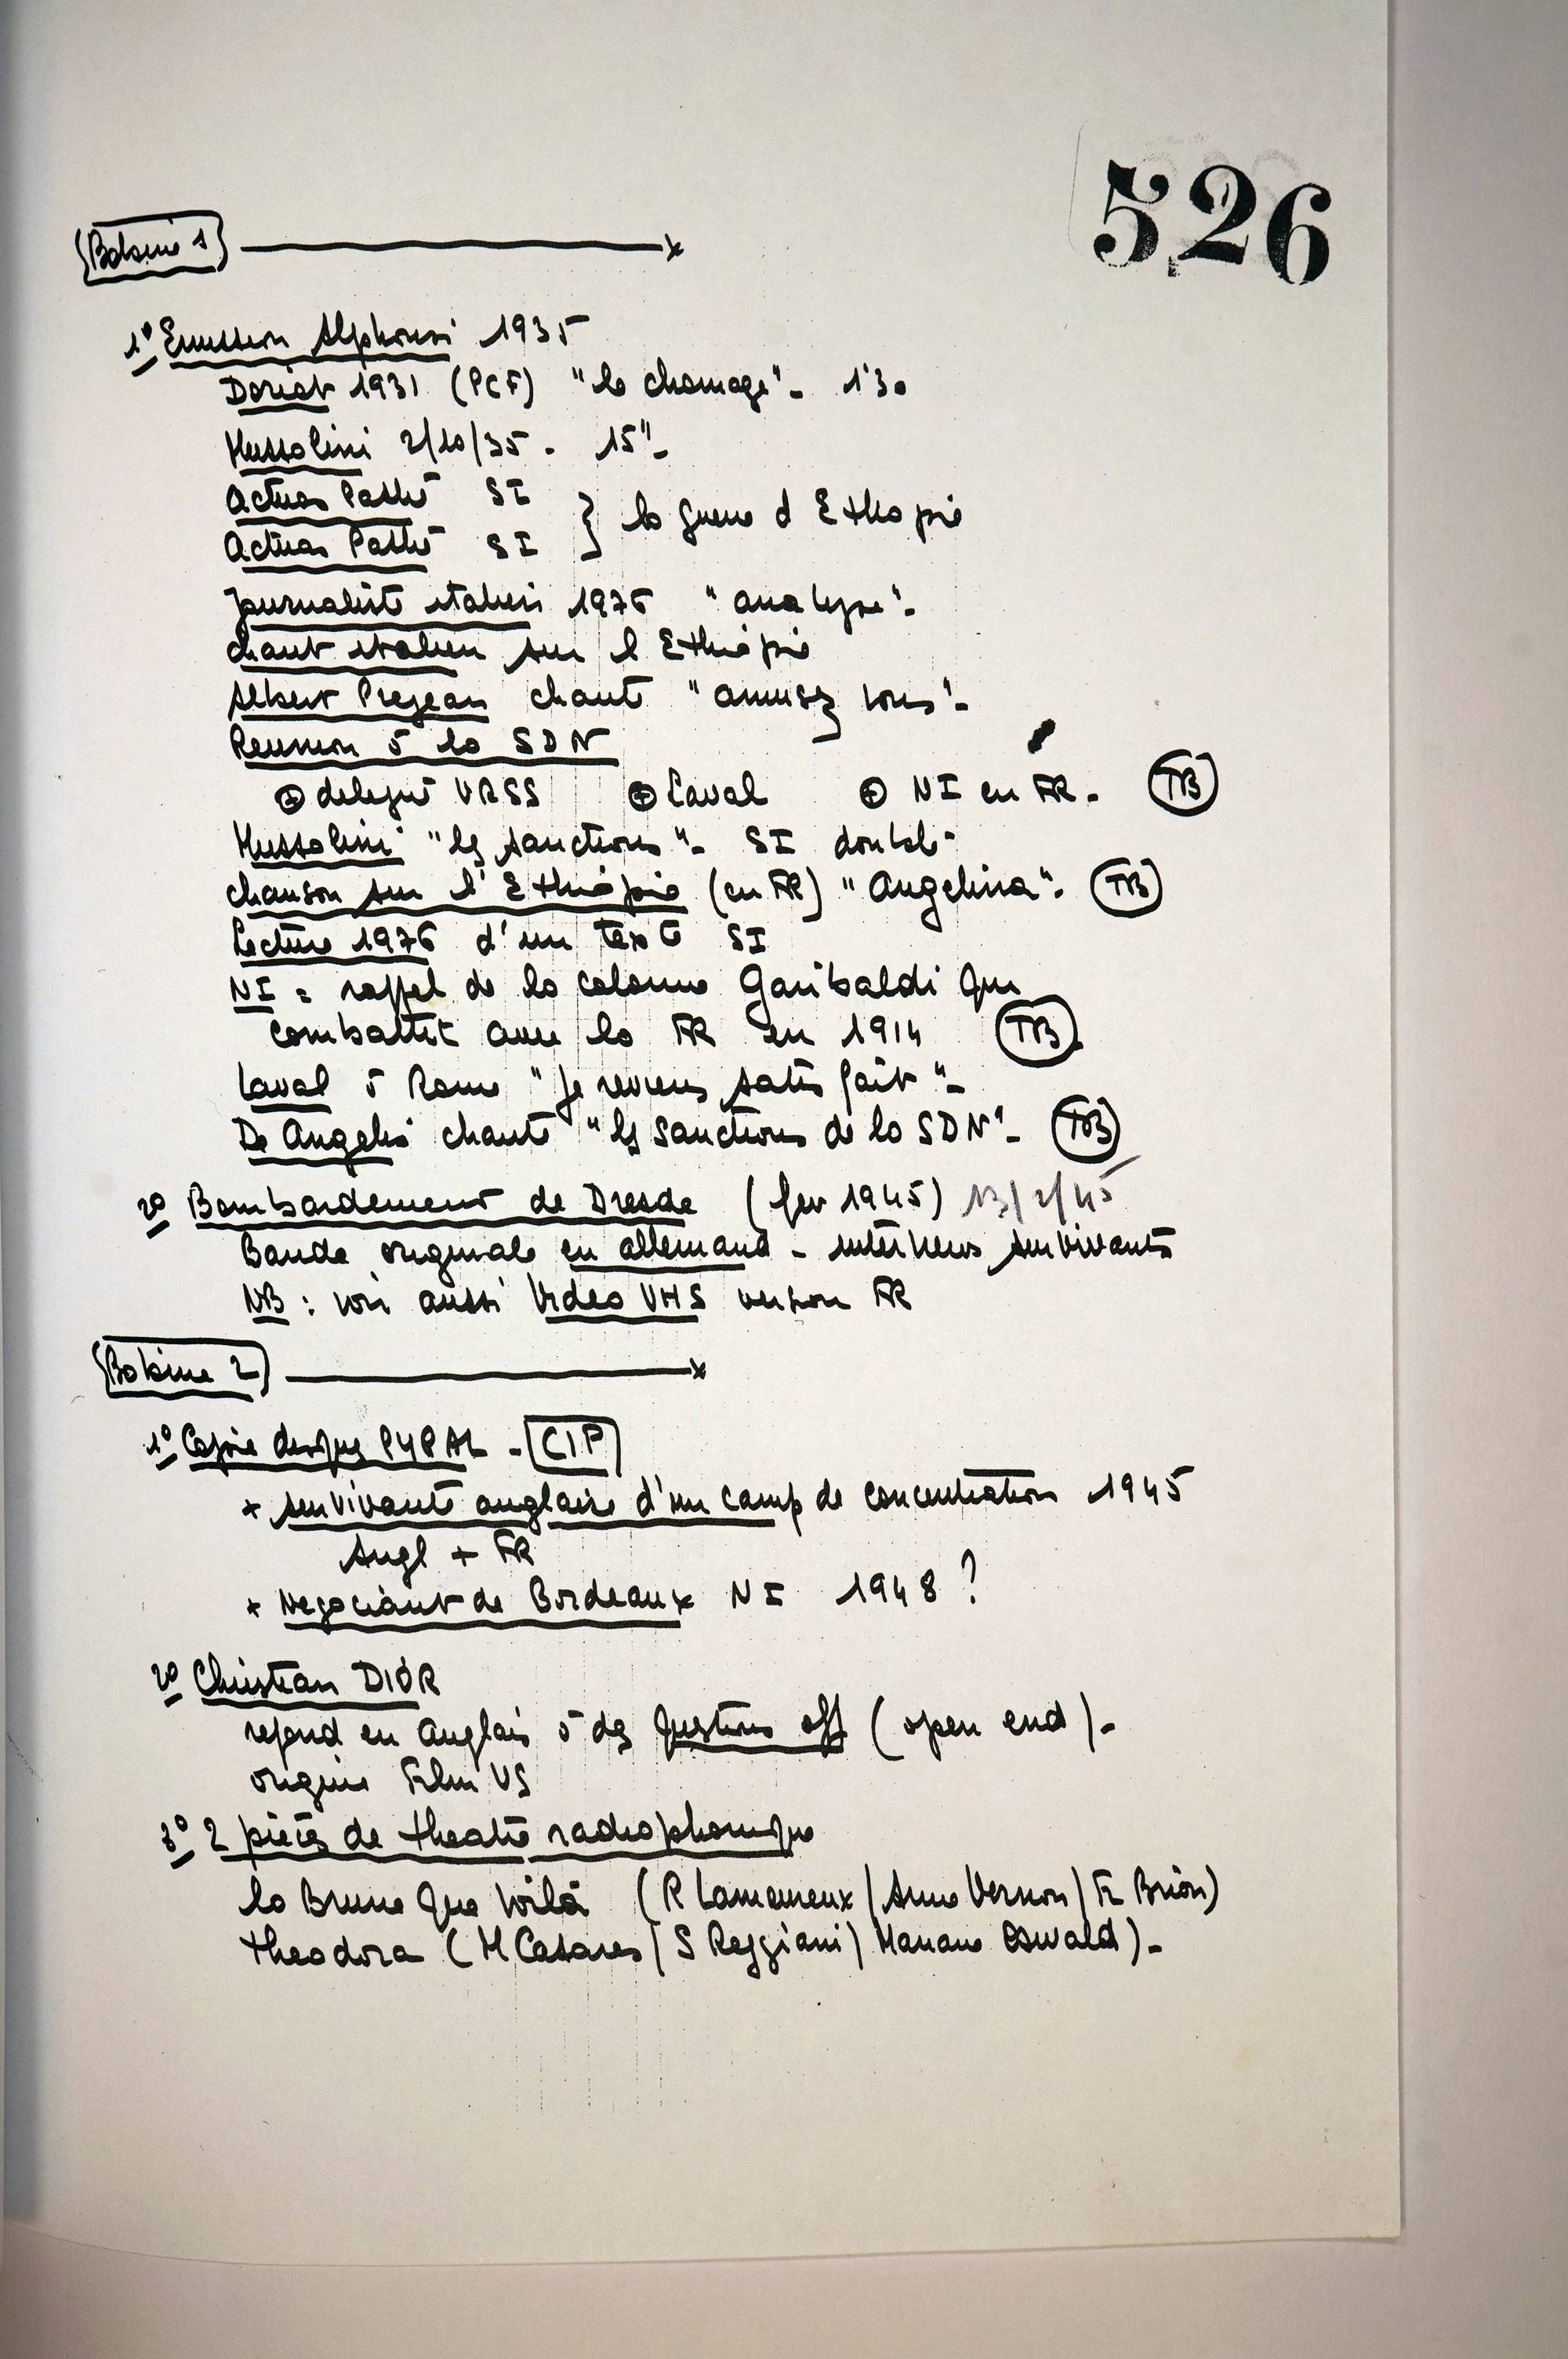 526
Bobine 1
1° Emission Alphonsi 1935
Doriot 1931 (PCF) "le chomage" - 1'30
Mussolini 2/10/35 - 15" -
Actuas Pathé SI
Actuas Pathé SI } la guerre d Ethiopie
Journaliste italien 1976 "analyse" -
Chant italien sur l Ethiopie
Albert Prejean chante "amusez vous" -
Reunion à la SDN
⊕ delegué URSS ⊕ Laval ⊕ NI en FR - TB
Mussolini "les sanctions" - SI double
Chanson sur l'Ethiopie (en FR) "Angelina" - TB
Lecture 1976 d'un texte SI
NI = rappel de la colonne Garibaldi qui
combattit avec la FR en 1914 TB
Laval à Rome "Je reviens satisfait" -
De Angelis chante "les sanctions de la SDN" - TB
2° Bombardement de Dresde (fev 1945) 13/2/45
Bande originale en allemand - interviews survivants
NB : voir aussi Video VHS version FR
Bobine 2
1° Copie disque PYRAL - CIP
+ survivante anglaise d'un camp de concentration 1945
Angl + FR
+ Negociant de Bordeaux NI 1948 ?
2° Christian DIOR
repond en anglais à des questions off (open end) -
origine Film US
3° 2 pieces de theatre radiophonique
la Brune que voilà (R Lamoureux / Anne Vernon / Fr Brion)
Theodora (M Casares / S Reggiani / Mariane Oswald) -